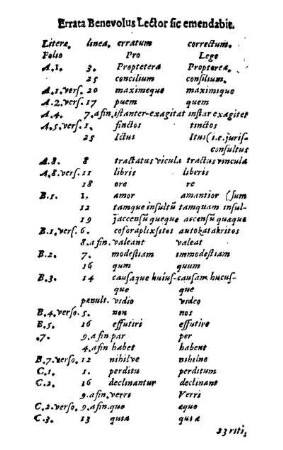 Errata Benevolus Lector sic emendabit.
Literæ linea. erratum correctum.
Folio Pro Lege
A.1. 3. Proptetera Propterea.
25 concilium consilium.
A.1.vers. 20 maximequе maximoque
A.2.vers. 17 puem quem
A.4. 7.a fin. istanter-exagitat instar exagitet
A.5.vers. 1. finctos tinctos
25 Ictus Itus (i.e. juris-
consultus
A.8. 8 tractatus vicula tractus vincula
A.8.vers. 11 libris liberis
18 ore re
B.1. 1. amor amantior (sum
12 tamque insultũ tamquam insul-
19 jaccensũ queque ascensũ quaque
B.1.vers. 6. autokatakritos
8.a fin. valeant valeat
B.2. 7. modestiam immodestiam
16 qum quum
B.3. 14 causaque huius- causam hucus-
que que
penult. vidio video
B.4.verso. 5. non nos
B.5. 16 effutiri effutire
.7. 9.a fin. par per
4.a fin habet habent
B.7.verso. 12 nihilve nihilne
C.1. 1. perditts perditum
C.2. 16 declinantur declinant
9.a fin. verris Verri
C.2.verso. 9.a fin. que aque
C.3. 13 quia
23 viti,